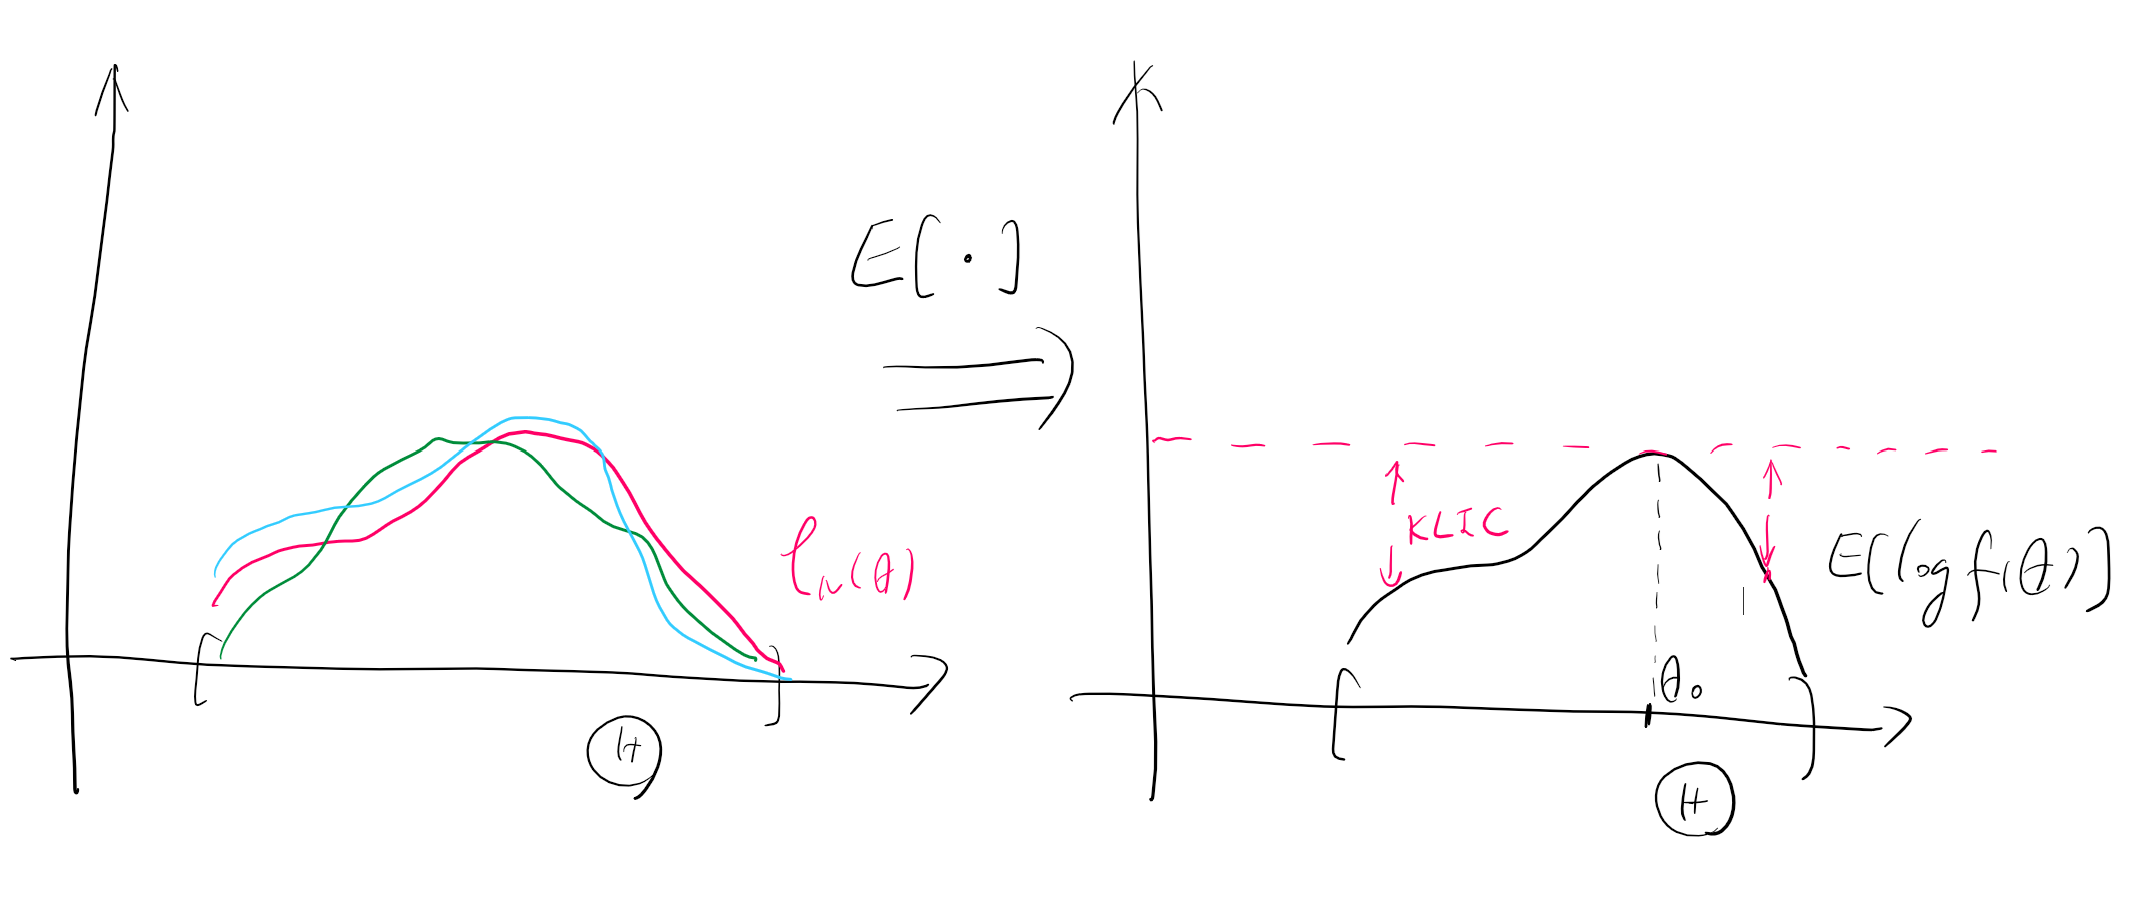 E[·]
ℓₙ(θ)
Θ
KLIC
E[log f(θ)]
θ₀
Θ